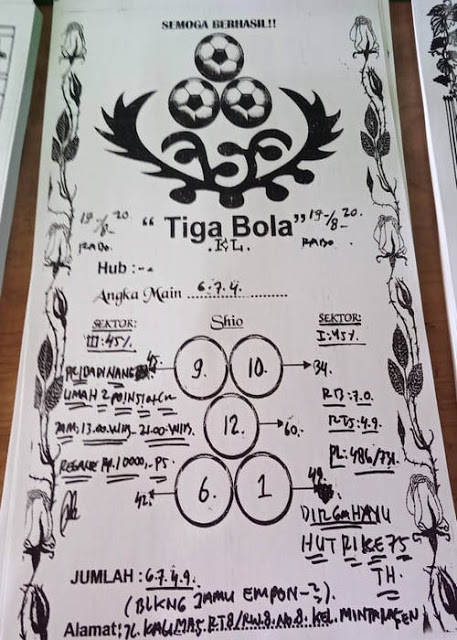 SEMOGA BERHASIL!!
19-/8- 20. RABO.
" Tiga Bola"
19-/8- 20. RABO.
.KL.
Hub :--
Angka Main ....6.7.4.............
SEKTOR:
III:45%.
Shio
SEKTOR:
I:45%.
45. 9. 10. 34.
12. 60.
42. 6. 1 49.
PRIDADINANG
UMAH
JAM: 13.00.WIB. 21.00.WIB.
10000,- PS.
RB: 7.0.
RTS: 4.9.
PL: 486/731.
DIRGAHAYU
HUT RI KE 75
TH.
JUMLAH : 6.7.4.9.
(BLKNG JAMU EMPON-2)
Alamat: JL. KALIMAS. RT.8/RW.8. No.8. KEL. MINTARAGEN